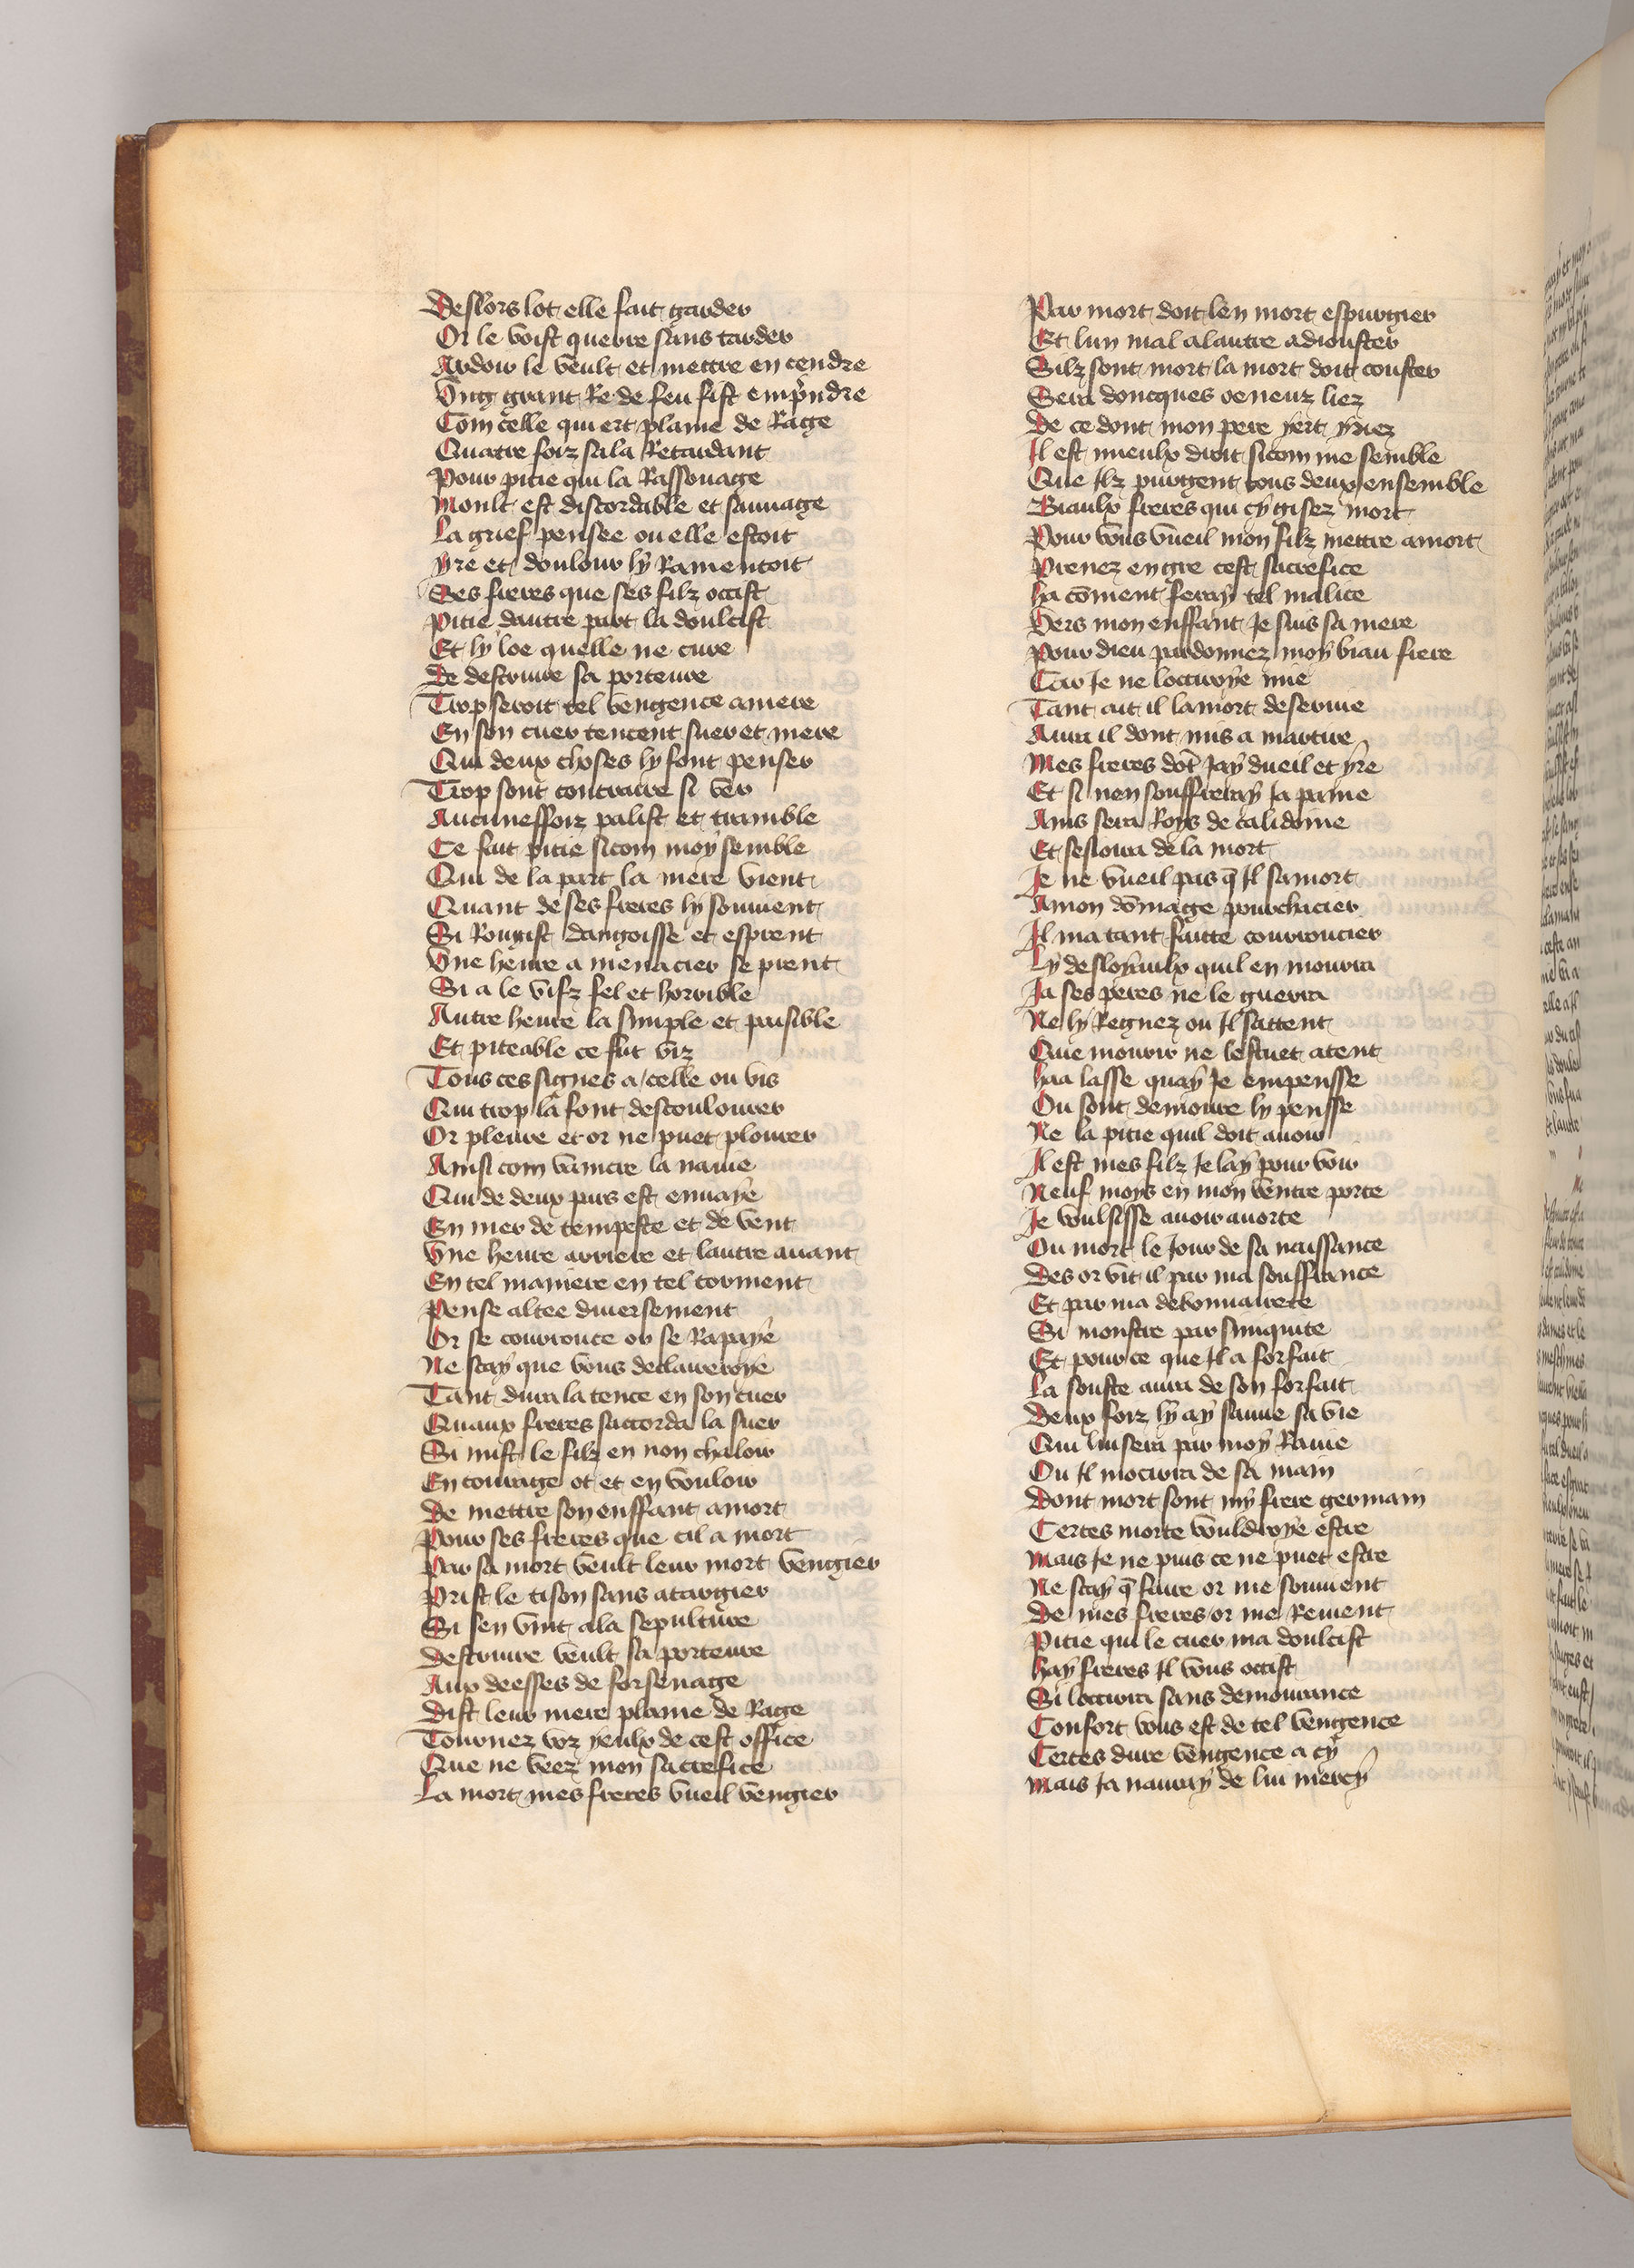 Deslors lot elle fait garder
Or le voist querre sans tarder
Ardoir le veult et mettre en cendre
Ung grant Re de feu fist emprendre
Com celle qui ert plaine de Rage
Quatre foiz sala Retardant
Pour pitie qui la Rassouage
Moult est discordable et sauvage
La grief pensee ou elle estoit
yre et doulour ly Ramentoit
Ses freres que ses filz occist
Pitie dautre part la doulcist
Et ly loe quelle ne cure
De destruire sa porteure
Trop seroit tel vengence amere
En son cuer tencent suer et mere
Qui deux choses ly font penser
Trop sont contraire si ver
Aucuneffoiz palist et tramble
Ce fait pitie sicom moy semble
Qui de la part la mere vient
Quant de ses freres ly souvient
Si Rougist dangoisse et esprent
Une heure a menacier se prent
Si a le vifz fel et horrible
Autre heure la simple et paisible
Et piteable ce fut viz
Tous ces signes a celle ou vis
Qui trop la font descoulourer
Or pleure et or ne puet plourer
Ainsi com vaincre la navie
Qui de deux pars est envaye
En mer de tempeste et de vent
Une heure arriere et lautre avant
En tel maniere en tel torment
Pense altee diversement
Or se courrouce or se Rapaye
Ne scay que vous declaireroye
Tant dura la tence en son cuer
Quaux freres saccorda la suer
Si mist le filz en non chaloir
En courage ot et en vouloir
De mettre son enffant a mort
Pour ses freres que cil a mort
Par sa mort veult leur mort vengier
Prist le tison sans atargier
Si sen vint a la sepulture
Destruire veult sa porteure
Aux deesses de forsenage
Dist leur mere plaine de Rage
Tournez voz yeulx de cest office
Que ne veez mon sacrefice
La mort mes freres vueil vengier
Par mort doit len mort espurgier
Et lun mal a lautre adiouster
Silz sont mort la mort doit couster
Sera doncques oeneuz liez
De ce dont mon pere yert yriez
Il est mieulx droit sicom me semble
Que Ilz purgent tous deux ensemble
Biaulx freres qui cy gisez mort
Pour vous vueil mon filz mettre a mort
Prenez en gre cest sacrefice
ha coment feray tel malice
Vers mon enffant Je suis sa mere
Pour dieu pardonnez moy biau frere
Car Je ne locciroye mie
Tant ait il la mort deservie
Aura il dont mis a martire
Mes freres dot Jay dueil et yre
Et si nen souffreray Ja paine
Ains sera Roys de calidoine
Et sesioura de la mort
Je ne vueil pas q Il sa mort
A mon domage pourchacier
Il ma tant faitte courroucier
Ly desloyaulx quil en mourra
Ja ses peres ne le guerra
Ne ly Regnez ou Il sattent
Que mourir ne lestuet atent
haa lasse quay Je empensse
Ou sont demoure ly pensse
Ne la pitie quil doit avoir
Il est mes filz Je lay pour voir
Neuf moys en mon ventre porte
Je voulsisse avoir avorte
Ou mort le Jour de sa naissance
Des or vit il par ma souffrance
Et par ma debonnairete
Si monstre par sniquite
Et pour ce que Il a forfait
La souste aura de son forfait
Deux foiz ly ay sauve sa vie
Qui lui sera par moy Ravie
Ou Il mocirra de sa main
Dont mort sont my frere germain
Certes morte vouldroye estre
Mais Je ne puis ce ne puet estre
Ne scay q faire or me souvient
De mes freres or me Revient
Pitie qui le cuer ma doulcist
hay freres Il vous occist
Si loccirra sans demourance
Confort vous est de tel vengence
Certes dure vengence a cy
Mais Ja nauray de lui mercy